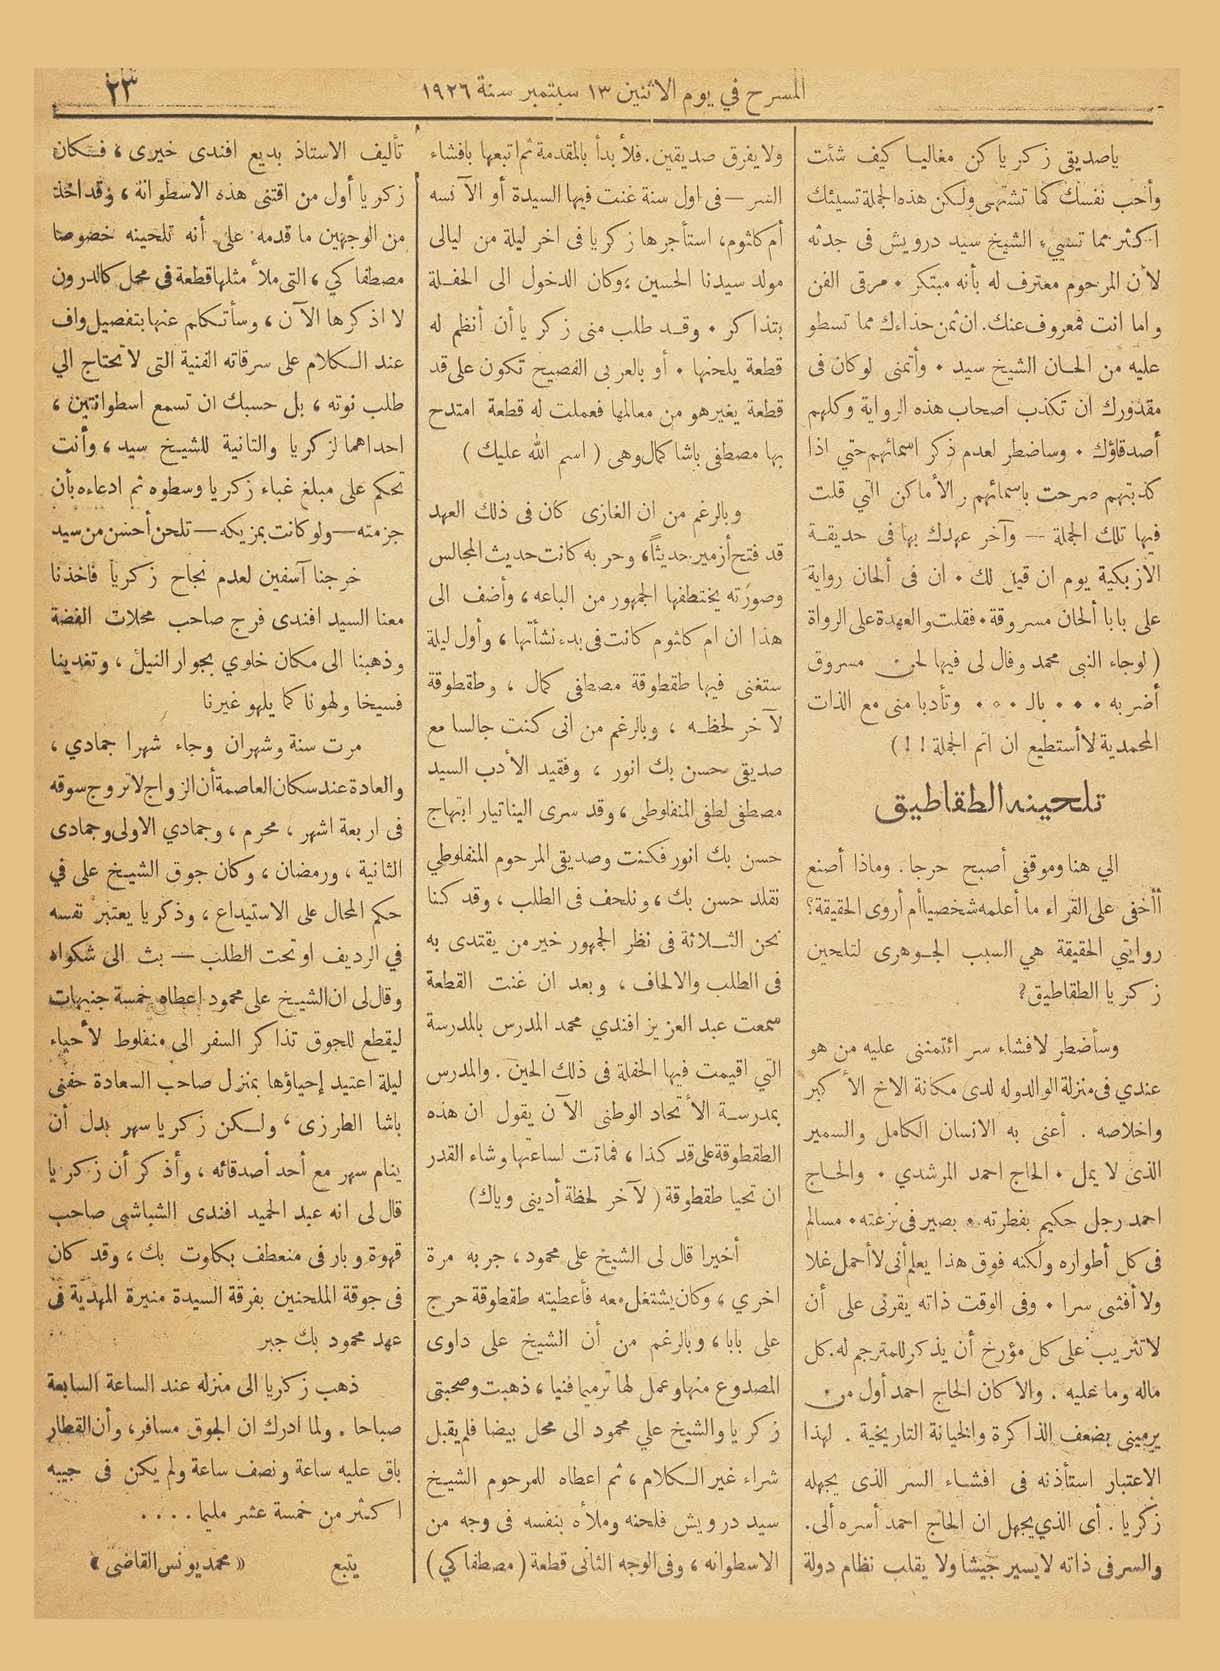 المسرح في يوم الاثنين ١٣ سبتمبر سنة ١٩٢٦
٢٣
ياصديقى زكريا كن مغاليا كيف شئت
وأحب نفسك كما تشتهى ولكن هذه الجملة تسيئك
اكثر مما تسيء الشيخ سيد درويش فى جدثه
لأن المرحوم معترف له بأنه مبتكر . مرقى الفن
واما انت فمعروف عنك. ان ثمن حذاءك مما تسطو
عليه من الحان الشيخ سيد . وأتمنى لوكان فى
مقدورك ان تكذب اصحاب هذه الرواية وكلهم
أصدقاؤك . وساضطر لعدم ذكر اسمائهم حتي اذا
كذبتهم صرحت باسمائهم والأماكن التي قلت
فيها تلك الجملة — وآخر عهدك بها فى حديقة
الازبكية يوم ان قيل لك . ان فى ألحان رواية
على بابا ألحان مسروقة . فقلت والعهدة على الرواة
( لوجاء النبى محمد وقال لى فيها لحن مسروق
أضربه . . . بالـ . . . وتأدبا منى مع الذات
المحمدية لا أستطيع ان اتم الجملة ! ! )
تلحينه الطقاطيق
الي هنا وموقفى أصبح حرجا . وماذا أصنع
أأخفى على القراء ما أعلمه شخصيا أم أروى الحقيقة؟
روايتي الحقيقة هي السبب الجوهرى لتلحين
زكريا الطقاطيق؟
وسأضطر لافشاء سر ائتمننى عليه من هو
عندي فى منزلة الوالد وله لدى مكانة الاخ الأكبر
واخلاصه . أعنى به الانسان الكامل والسمير
الذى لا يمل . الحاج احمد المرشدي . والحاج
احمد رجل حكيم بفطرته . بصير فى نزعته . مسالم
فى كل أطواره ولكنه فوق هذا يعلم أنى لا أحمل غلا
ولا أفشى سرا . وفى الوقت ذاته يقرنى على أن
لا تثريب على كل مؤرخ أن يذكر للمترجم له. كل
ماله وما عليه . والا كان الحاج احمد أول من
يرمينى بضعف الذاكرة والخيانة التاريخية . لهذا
الاعتبار استأذنه فى افشاء السر الذى يجهله
زكريا . أى الذي يجهل ان الحاج احمد أسره ألى.
والسر فى ذاته لا يسير جيشا ولا يقلب نظام دولة
ولا يفرق صديقين. فلأبدأ بالمقدمة ثم اتبعها بافشاء
السر — فى اول سنة غنت فيها السيدة أو الآنسة
أم كلثوم، استأجرها زكريا فى اخر ليلة من ليالى
مولد سيدنا الحسين ، وكان الدخول الى الحفلة
بتذاكر . وقد طلب منى زكريا أن أنظم له
قطعة يلحنها . أو بالعربى الفصيح تكون على قد
قطعة يغير هو من معالمها فعملت له قطعة امتدح
بها مصطفى باشا كمال وهى ( اسم الله عليك )
وبالرغم من ان الغازى كان فى ذلك العهد
قد فتح أزمير حديثاً، وحربه كانت حديث المجالس
وصورته يختطفها الجمهور من الباعه ، وأضف الى
هذا ان ام كلثوم كانت فى بدء نشأتها ، وأول ليلة
ستغنى فيها طقطوقة مصطفى كمال ، وطقطوقة
لآخر لحظه ، وبالرغم من انى كنت جالسا مع
صديقى حسن بك انور ، وفقيد الأدب السيد
مصطفى لطفى المنفلوطى ، وقد سرى الينا تيار ابتهاج
حسن بك انور فكنت وصديقى المرحوم المنفلوطي
نقلد حسن بك ، ونلحف فى الطلب ، وقد كنا
نحن الثلاثة فى نظر الجمهور خير من يقتدى به
فى الطلب والالحاف ، وبعد ان غنت القطعة
سمعت عبد العزيز افندي محمد المدرس بالمدرسة
التي اقيمت فيها الحفلة فى ذلك الحين . والمدرس
بمدرسة الأتحاد الوطنى الآن يقول ان هذه
الطقطوقة على قد كذا ، فماتت لساعتها وشاء القدر
ان تحيا طقطوقة ( لآخر لحظة أديني وياك)
أخيرا قال لى الشيخ على محمود ، جربه مرة
اخري ، وكان يشتغل معه فأعطيته طقطوقة حرج
على بابا ، وبالرغم من أن الشيخ على داوى
المصدوع منها وعمل لها ترميما فنيا ، ذهبت وصحبتى
زكريا والشيخ علي محمود الى محل بيضا فلم يقبل
شراء غير الكلام ، ثم اعطاه للمرحوم الشيخ
سيد درويش فلحنه وملأه بنفسه فى وجه من
الاسطوانه ، وفى الوجه الثانى قطعة ( مصطفاكي )
تأليف الاستاذ بديع افندى خيرى ، فكان
زكريا أول من اقتنى هذه الاسطوانة ، وقد اخذ
من الوجهين ما قدمه على أنه تلحينه خصوصا
مصطفاكي ، التى ملأ مثلها قطعة فى محل كالدرون
لا اذكرها الآن ، وسأتكلم عنها بتفصيل واف
عند الكلام على سرقاته الفنية التى لا تحتاج الي
طلب نوته ، بل حسبك ان تسمع اسطوانتين ،
احداهما لزكريا والثانية للشيخ سيد ، وأنت
تحكم على مبلغ غباء زكريا وسطوه ثم ادعاءه بأن
جزمته — ولو كانت بمزيكه — تلحن أحسن من سيد
خرجنا آسفين لعدم نجاح زكريا فاخذنا
معنا السيد افندى فرج صاحب محلات الفضة
وذهبنا الى مكان خلوي بجوار النيل ، وتغدينا
فسيخا ولهونا كما يلهو غيرنا
مرت سنة وشهران وجاء شهرا جمادي ،
والعادة عند سكان العاصمة أن الزواج لا تروج سوقه
فى اربعة اشهر ، محرم ، وجمادي الاولى وجمادى
الثانية ، ورمضان ، وكان جوق الشيخ على في
حكم المحال على الاستيداع ، وذكريا يعتبر نفسه
في الرديف او تحت الطلب — بث الى شكواه
وقال لى ان الشيخ على محمود اعطاه خمسة جنيهات
ليقطع للجوق تذاكر السفر الى منفلوط لأحياء
ليلة اعتيد إحياؤها بمنزل صاحب السعادة حفنى
باشا الطرزى ، ولكن زكريا سهر بدل أن
ينام سهر مع أحد أصدقائه ، وأذكر أن زكريا
قال لى انه عبد الحميد افندى الشباشى صاحب
قهوة وبار فى منعطف بكلوت بك ، وقد كان
فى جوقة الملحنين بفرقة السيدة منيرة المهدية فى
عهد محمود بك جبر
ذهب زكريا الى منزله عند الساعة السابعة
صباحا . ولما ادرك ان الجوق مسافر، وأن القطار
باق عليه ساعة ونصف ساعة ولم يكن فى جيبه
اكثر من خمسة عشر مليما . . . .
يتبع « محمد يونس القاضى »